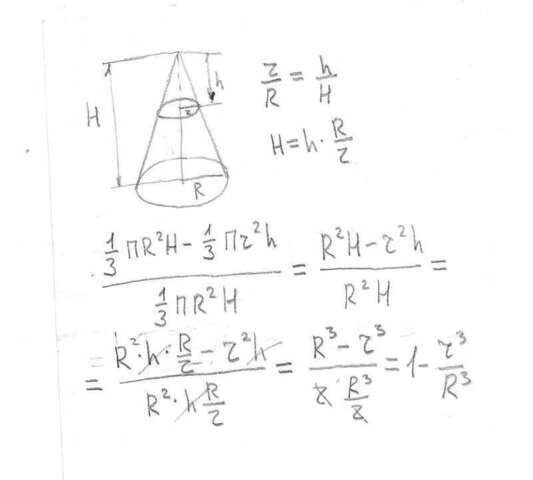 H
h
r
R
r/R = h/H
H = h · R/r
(1/3 ПR²H − 1/3 Пr²h) / (1/3 ПR²H) = (R²H − r²h) / (R²H) =
= (R² · h · R/r − r²h) / (R² · h R/r) = (R³ − r³) / (r R³/r) = 1 − r³/R³